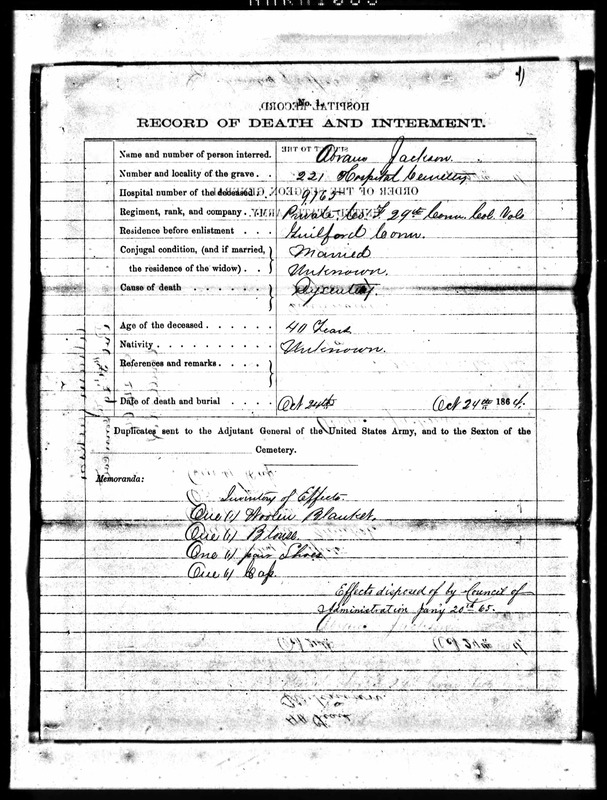 No. 1.
RECORD OF DEATH AND INTERMENT.
Name and number of person interred. Abram Jackson.
Number and locality of the grave . . 221 Hospital Cemetery
Hospital number of the deceased . . 9,763
Regiment, rank, and company . . . Private, Co. F 29th Conn. Col. Vols
Residence before enlistment . . . . Guilford Conn.
Conjugal condition, (and if married, Married
the residence of the widow) . . . Unknown.
Cause of death . . . . . . . Dysentery.
Age of the deceased . . . . . . 40 Years
Nativity . . . . . . . . . . Unknown.
References and remarks . . . .
Date of death and burial . . . . Oct 24th Oct 24th 1864.
Duplicates sent to the Adjutant General of the United States Army, and to the Sexton of the
Cemetery.
Memoranda:
Inventory of Effects.
One (1) Woolen Blanket.
One (1) Blouse.
One (1) pair Shoes
One (1) Cap.
Effects disposed of by Council of
Administration Jan'y 20th 65.